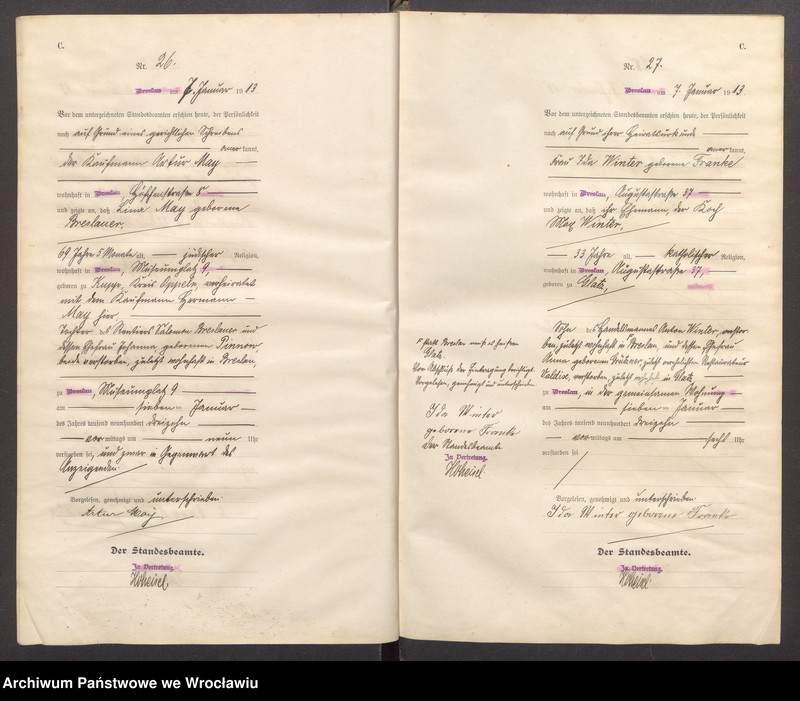 C.
Nr. 26.
Breslau am 7. Januar 1913
Vor dem unterzeichneten Standesbeamten erschien heute, der Persönlichkeit
nach auf Grund eines gerichtlichen Schreibens
anerkannt,
der Kaufmann Artur May
wohnhaft in Breslau, Höfchenstraße 5
und zeigte an, daß Lina May geborene
Breslauer,
69 Jahre 5 Monate alt, jüdischer Religion,
wohnhaft in Breslau, Museumplatz 9
geboren zu Kupp, Kreis Oppeln, verheiratet
mit dem Kaufmann Hermann
May hier,
Tochter des Rentiers Breslauer und
dessen Ehefrau Johanna geborenen Pinnow,
beide verstorben, zuletzt wohnhaft in Breslau,
zu Breslau, Museumplatz 9
am sieben Januar
des Jahres tausend neunhundert dreizehn
vormittags um neun Uhr
verstorben sei, und zwar in Gegenwart des
Anzeigenden
Vorgelesen, genehmigt und unterschrieben
Artur May
Der Standesbeamte.
In Vertretung.
C.
Nr. 27.
Breslau am 7. Januar 1913.
Vor dem unterzeichneten Standesbeamten erschien heute, der Persönlichkeit
nach auf Grund ihrer Heiratsurkunde
anerkannt,
Frau Ida Winter geborene Franke
wohnhaft in Breslau, Augustastraße 37
und zeigte an, daß ihr Ehemann, der Koch
Max Winter,
33 Jahre alt, katholischer Religion,
wohnhaft in Breslau, Augustastraße 37,
geboren zu Glatz,
Sohn des Handelsmannes Anton Winter, verstorben,
zuletzt wohnhaft in Breslau, und dessen Ehefrau
Anna geborenen zuletzt verehelichten Restaurateur
verstorben, zuletzt wohnhaft in Glatz
zu Breslau, in der gemeinsamen Wohnung
am sieben Januar
des Jahres tausend neunhundert dreizehn
vormittags um sechs Uhr
verstorben sei
Vorgelesen, genehmigt und unterschrieben
Ida Winter geborene Franke
Der Standesbeamte.
In Vertretung.
statt Breslau muß es heißen
Glatz.
Vor Abschluß der Eintragung berichtigt.
Vorgelesen, genehmigt und unterschrieben
Ida Winter
geborene Franke
Der Standesbeamte
In Vertretung.
Archiwum Państwowe we Wrocławiu